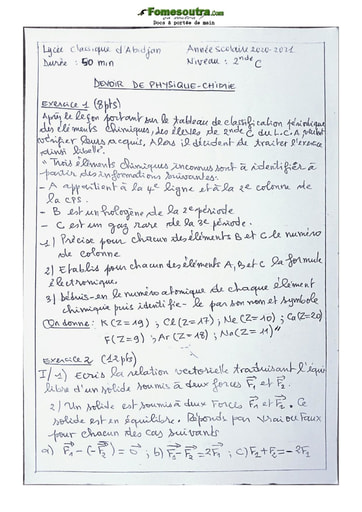 Fomesoutra.com
ça soutra !
Docs à portée de main
Lycée classique d'Abidjan Année scolaire 2020-2021
Durée : 50 min Niveau : 2nde C
DEVOIR DE PHYSIQUE-CHIMIE
Exercice 1 (8pts)
Après le leçon portant sur le tableau de classification périodique
des éléments chimiques, des élèves de 2nde C du L.C.A veulent
vérifier leurs acquis. Alors il décident de traiter l'exercice
ainsi libellé.
"Trois éléments chimiques inconnus sont à identifier à
partir des informations suivantes.
- A appartient à la 4e ligne et à la 2e colonne de
la CPS.
- B est un halogène de la 2e période
- C est un gaz rare de la 3e période.
1) Précise pour chacun des éléments B et C le numéro
de colonne
2) Etablis pour chacun des éléments A, B et C la formule
électronique.
3) Déduis-en le numéro atomique de chaque élément
chimique puis identifie-le par son nom et symbole
On donne : K(Z=19) ; Cl(Z=17) ; Ne(Z=10) ; Ca(Z=20)
F(Z=9) ; Ar(Z=18) ; Na(Z=11)"
Exercice 2 (12pts)
I/ 1) Ecris la relation vectorielle traduisant l'équi
libre d'un solide soumis à deux forces F₁ et F₂.
2) Un solide est soumis à deux Forces F₁ et F₂. Ce
solide est en équilibre. Réponds par vrai ou Faux
pour chacun des cas suivants
a) F₁ - (-F₂) = 0 ; b) F₁ - F₂ = 2F₁ ; c) F₂ + F₂ = -2F₂